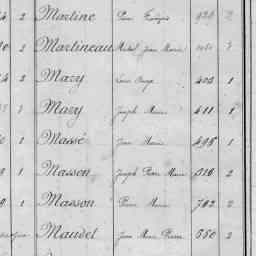 2 Martine Pierre François 926 2
2 Martineau Michel Jean Marie
2 Mary Louis Ange 403 1
Mary Joseph Marie 411 1
1 Massé Jean Marie 495 1
1 Masson Joseph Pierre Marie 516 2
1 Masson Pierre Marie 792 2
Maudet Jean Marie Pierre 550 2